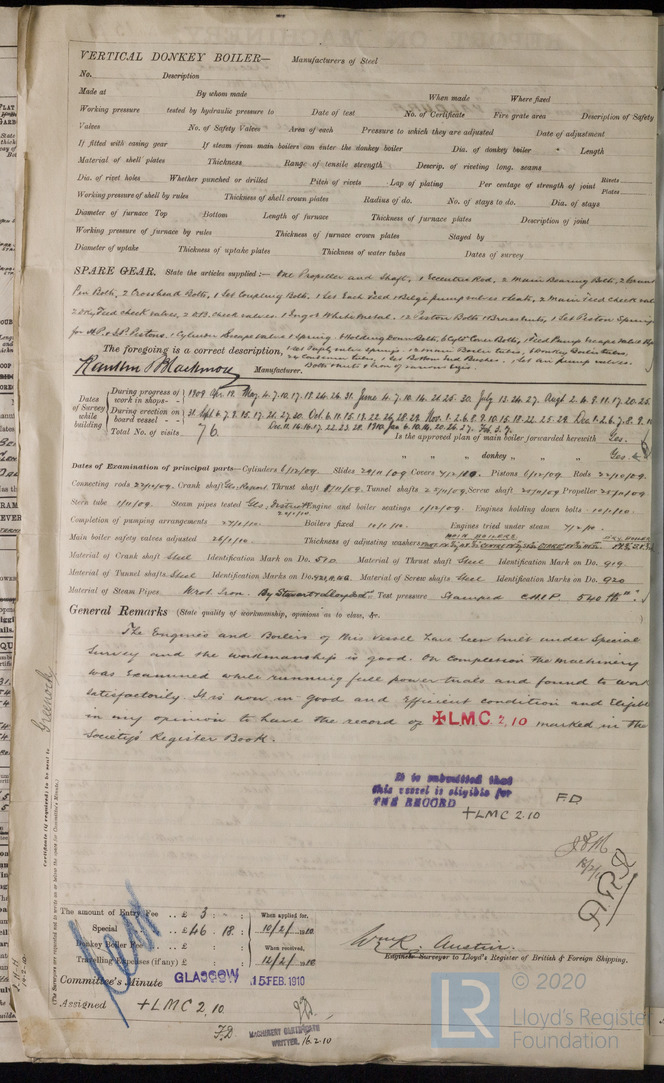 VERTICAL DONKEY BOILER— Manufacturers of Steel
No. Description
Made at By whom made When made Where fixed
Working pressure tested by hydraulic pressure to Date of test No. of Certificate Fire grate area Description of Safety
Valves No. of Safety Valves Area of each Pressure to which they are adjusted Date of adjustment
If fitted with easing gear If steam from main boilers can enter the donkey boiler Dia. of donkey boiler " Length
Material of shell plates Thickness Range of tensile strength Descrip. of riveting long. seams
Dia. of rivet holes Whether punched or drilled Pitch of rivets Lap of plating Per centage of strength of joint Rivets Plates
Working pressure of shell by rules Thickness of shell crown plates Radius of do. No. of stays to do. Dia. of stays
Diameter of furnace Top Bottom Length of furnace Thickness of furnace plates Description of joint
Working pressure of furnace by rules Thickness of furnace crown plates Stayed by
Diameter of uptake Thickness of uptake plates Thickness of water tubes Dates of survey
SPARE GEAR. State the articles supplied:— One Propeller and Shaft, 1 Eccentric Rod, 2 Main Bearing Bolts, 2 Crank
Pin Bolts, 2 Crosshead Bolts, 1 Set Coupling Bolts, 1 Set Each Feed & Bilge pump valves & seats, 2 Main Feed check
2 Dky Feed check valves, White Metal. 12 Piston Bolts 1 Set Piston Springs
for H.P. & I.P. Pistons, 1 Cylinder Escape valve & spring. 6 Holding Down Bolts, 6 Cylr Cover Bolts, 1 Feed Pump Escape valve
The foregoing is a correct description, springs. 12 main Boiler tubes, 6 Donkey Boiler tubes,
Condenser tubes, 1 Set Bottom End Bushes. 1 Set air pump valves.
Rankin & Blackmore Manufacturer. Bolts & nuts & iron of various sizes.
Dates of Survey while building
During progress of work in shops - - 1909 Apr. 19. May. 4. 7. 10. 17. 18. 24. 26. 31. June 4. 7. 10. 14. 24. 25. 30. July 12. 26. 27. Augt. 2. 4. 9. 11. 17. 20. 25.
During erection on board vessel - - - 31. Sept. 6. 7. 9. 15. 17. 21. 27. 30. Oct. 6. 11. 15. 19. 22. 26. 28. 29. Nov. 1. 2. 6. 8. 9. 10. 15. 18. 22. 25. 29. Dec. 1. 2. 6. 7. 8. 9. 10
Total No. of visits 76. Dec. 11. 14. 16. 17. 22. 23. 28. 1910. Jan. 6. 10. 14. 20. 26. 27. Feb. 3. 7.
Is the approved plan of main boiler forwarded herewith Yes.
" " " donkey " " " Yes.
Dates of Examination of principal parts—Cylinders 6/12/09. Slides 29/11/09 Covers Pistons 6/12/09. Rods 22/11/09.
Connecting rods 22/11/09. Crank shaft Gls. Report. Thrust shaft 8/11/09. Tunnel shafts Screw shaft 25/11/09 Propeller 25/11/09
Stern tube 1/11/09. Steam pipes tested Engine and boiler seatings 1/12/09. Engines holding down bolts 10/1/10.
Completion of pumping arrangements 27/1/10. Boilers fixed 10/1/10. Engines tried under steam 7/2/10
Main boiler safety valves adjusted 26/1/10. Thickness of adjusting washers MAIN BOILERS DKY. BOILER
Material of Crank shaft Steel Identification Mark on Do. 570 Material of Thrust shaft Steel Identification Mark on Do. 919.
Material of Tunnel shafts Steel Identification Marks on Do. Material of Screw shafts Steel Identification Marks on Do. 920
Material of Steam Pipes Wrot. Iron. By Stewarts & Lloyds Ltd Test pressure Stamped 540 lbs □".
General Remarks (State quality of workmanship, opinions as to class, &c.
The Engines and Boilers of this vessel have been built under Special
Survey and the workmanship is good. On completion the machinery
was examined while running full power trials and found to work
satisfactorily. It is now in good and efficient condition and eligible
in my opinion to have the record of ✠LMC. 2.10 marked in the
Society's Register Book.
Certificate (if required) to be sent to Greenock
(The Surveyors are requested not to write on or below the space for Committee's Minute.)
It is submitted that
this vessel is eligible for
THE RECORD
+LMC 2.10 FD
The amount of Entry Fee . . £ 3 : : When applied for,
Special . . £ 46 . 18 . : 10/2/1910
Donkey Boiler Fee . . £ : : When received,
Travelling Expenses (if any) £ : : 12/2/1910
Wm. R. Austin.
Engineer Surveyor to Lloyd's Register of British & Foreign Shipping.
Committee's Minute GLASGOW 15 FEB. 1910
Assigned +LMC 2.10
F.D.
MACHINERY CERTIFICATE
WRITTEN. 16.2.10
© 2020
LR
Lloyd's Register
Foundation